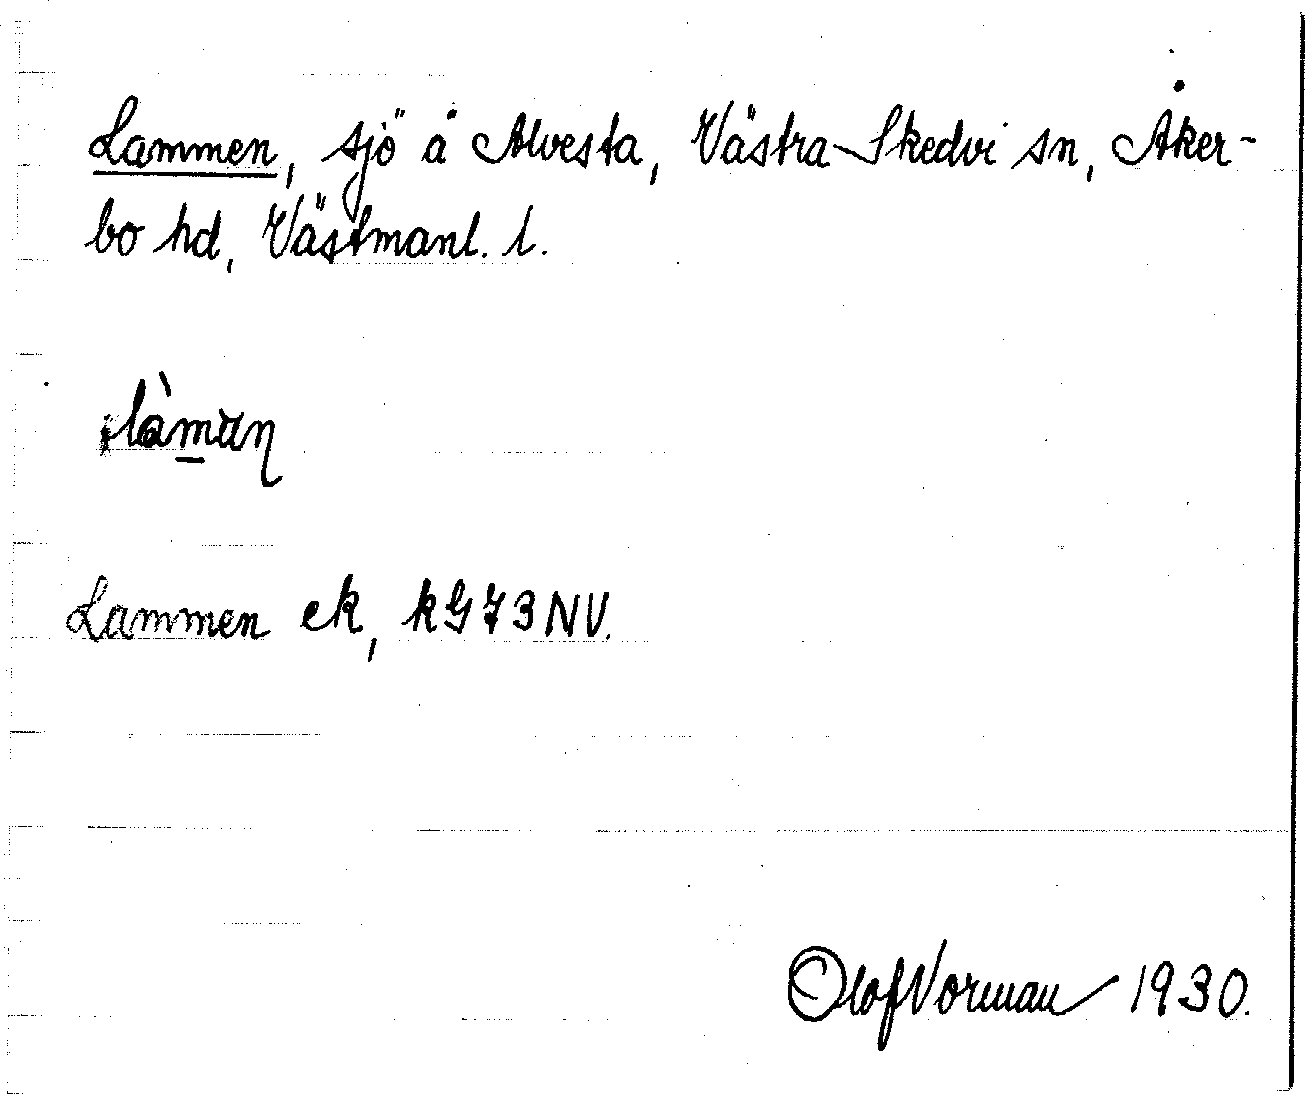 Lammen, sjö å Alvesta, Västra Skedvi sn, Åker-
bo hd, Västmanl. l.
Lammen ek, kG73NV.
Olof Vorman 1930.